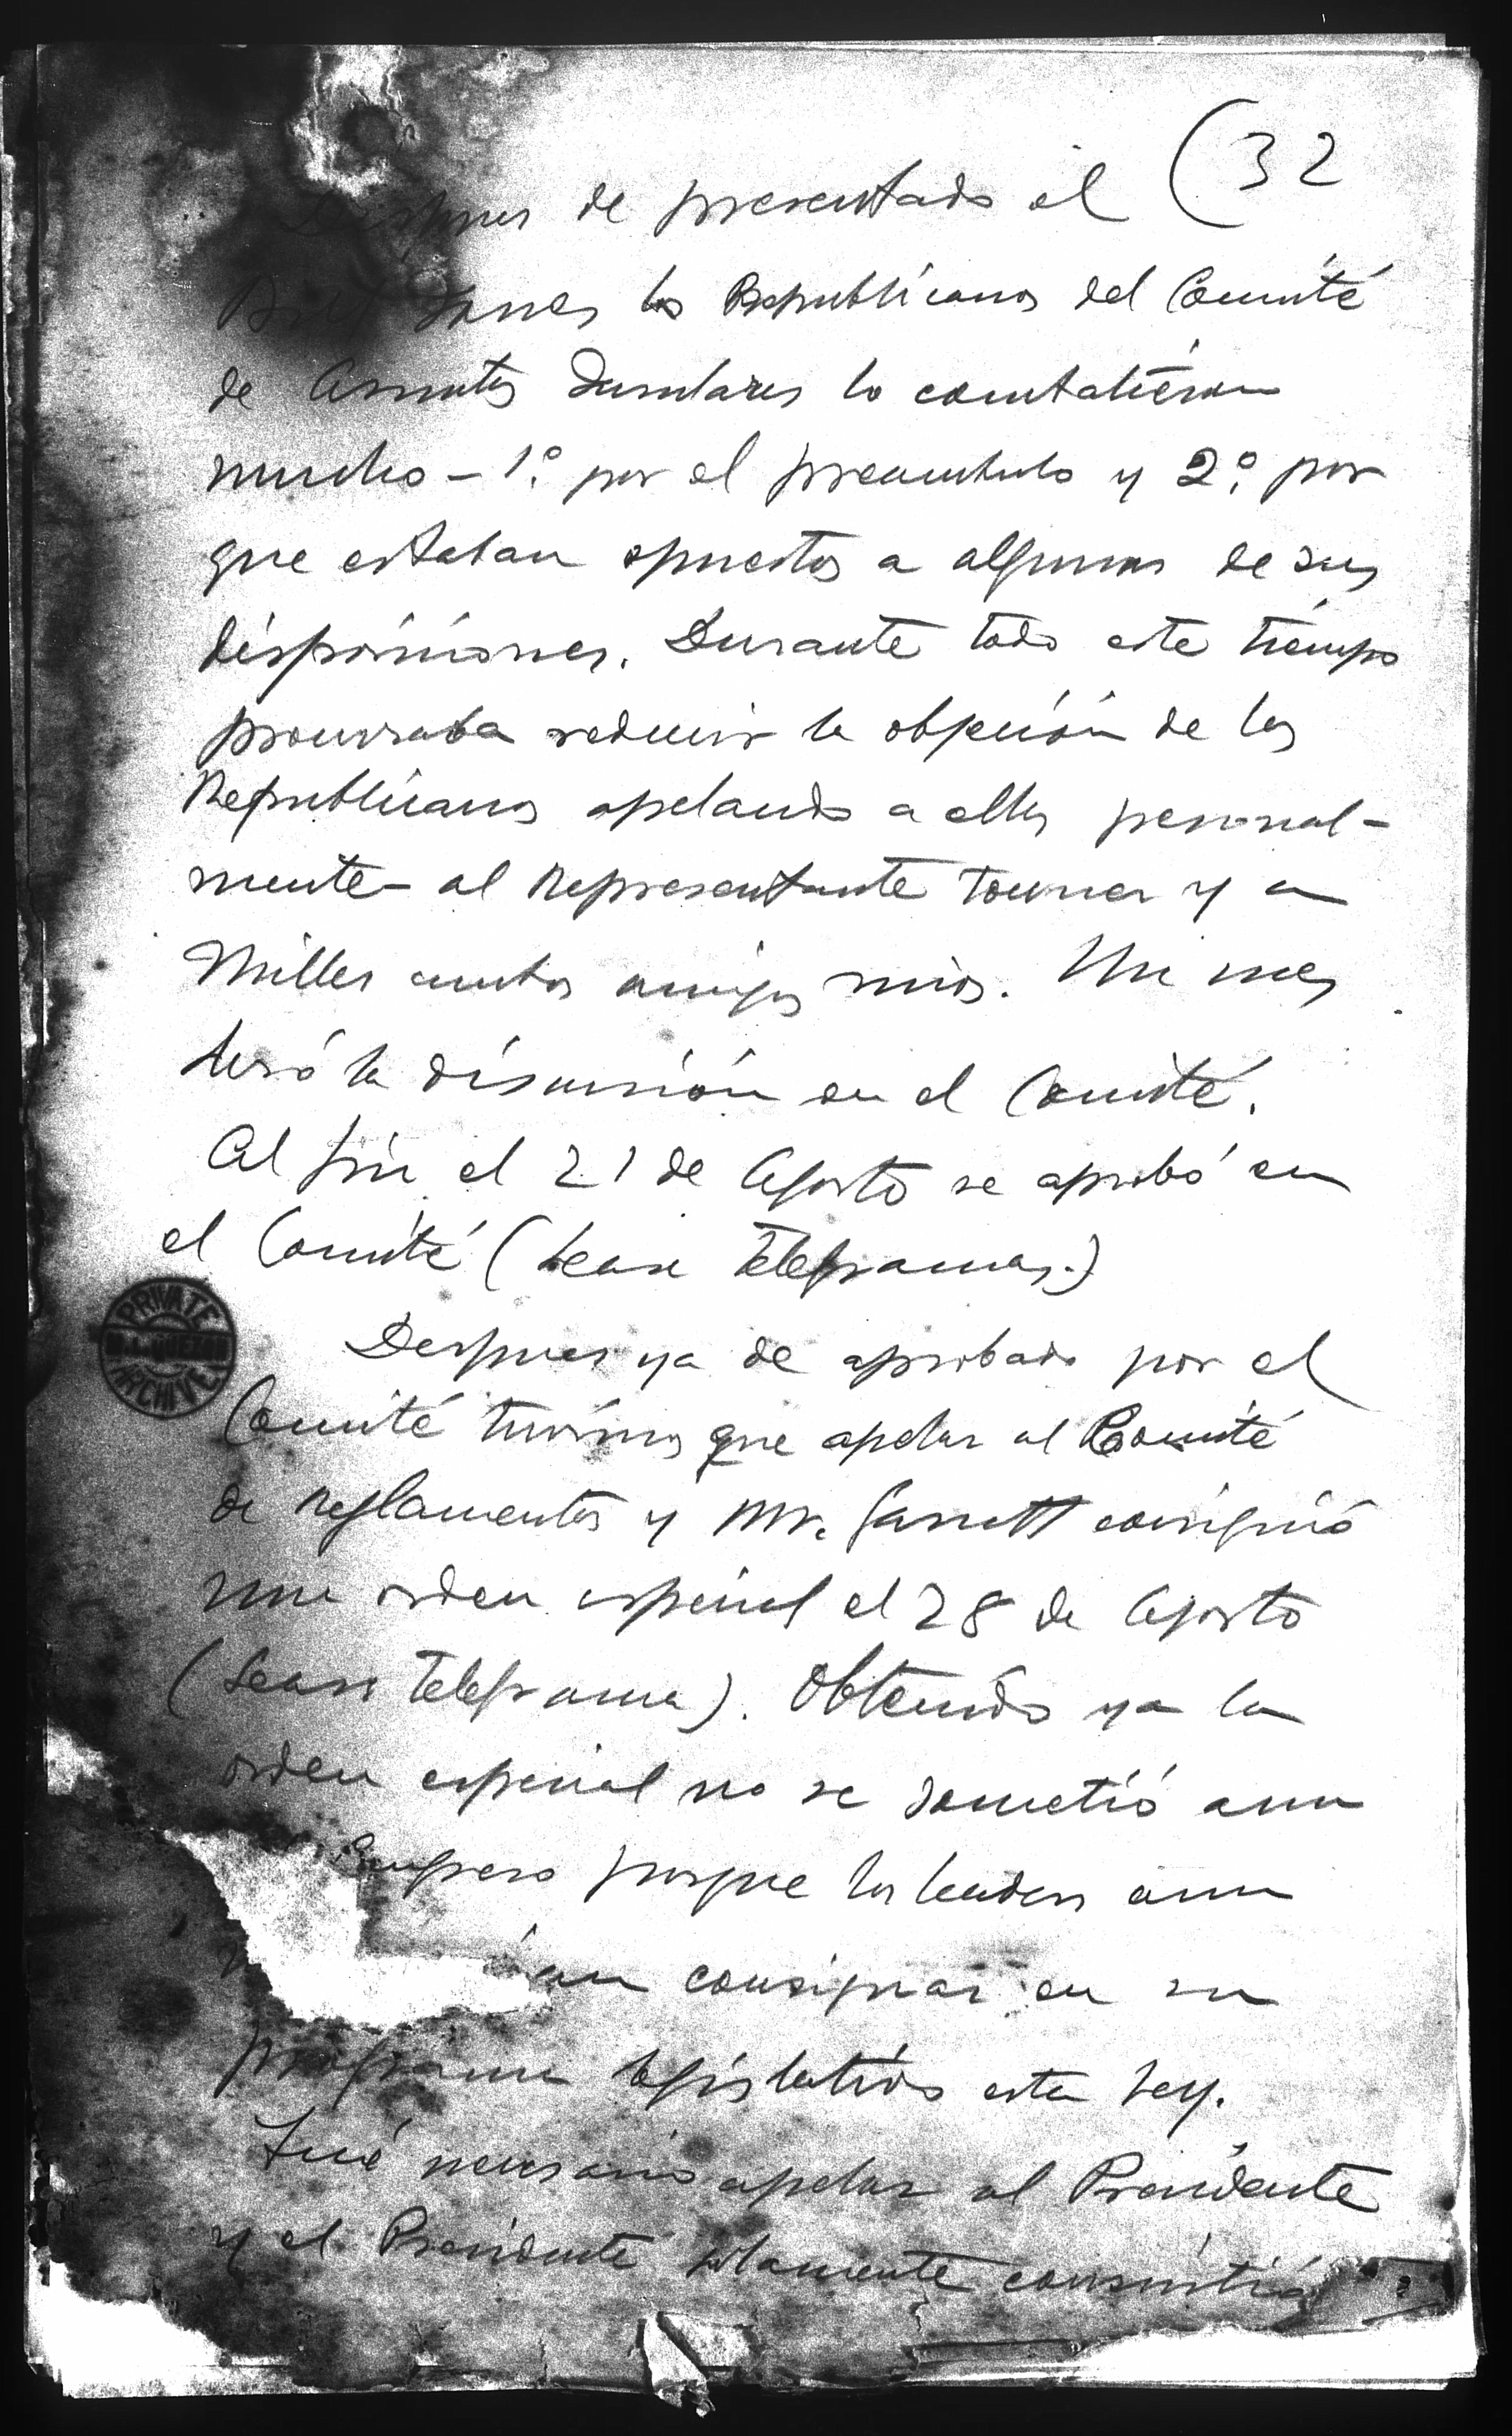 (32
Despues de presentado el
Bill Jones los Republicanos del Comité
de Asuntos Insulares lo combatieron
mucho – 1º. por el preambulo y 2º. por
que estaban opuestos a algunas de sus
disposiciones. Durante todo este tiempo
procuraba reducir la objeción de los
Republicanos apelando a ellos personal-
mente – al Representante Towner y a
Miller ambos amigos mios. Un mes
duró la discusión en el Comité.
Al fin el 21 de Agosto se aprobó en
el Comité (Lease telegramas.)
Despues ya de aprobado por el
Comité tuvimos que apelar al Comité
de reglamentos y Mr. Garrett consiguió
una orden especial el 28 de Agosto
(Lease telegrama). Obtenido ya la
orden especial no se sometió aun
porque los leaders aun
consignar en su
programa legislativo esta ley.
Fué necesario apelar al Presidente
y el Presidente solamente consintió
PRIVATE
M.L. QUEZON
ARCHIVE